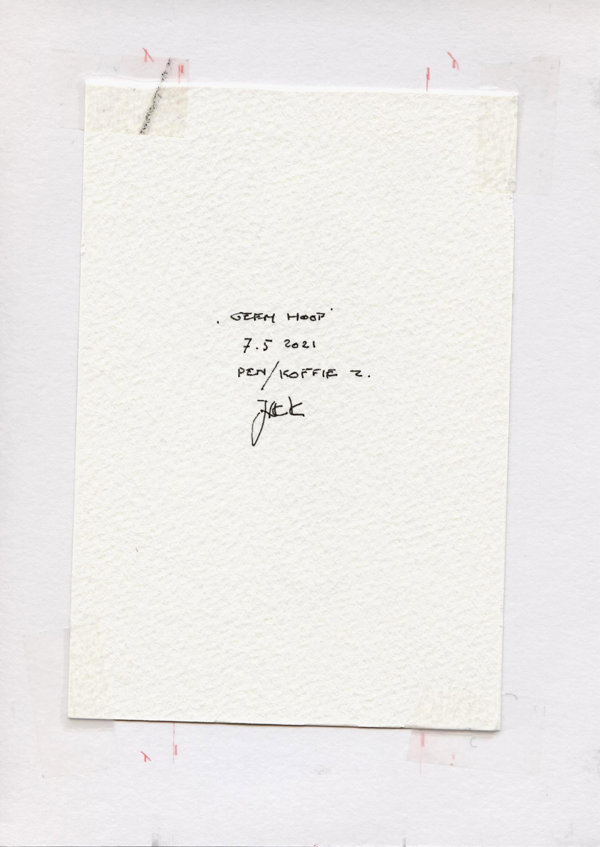 'GEEN HOOP'
7.5 2021
PEN/KOFFIE Z.